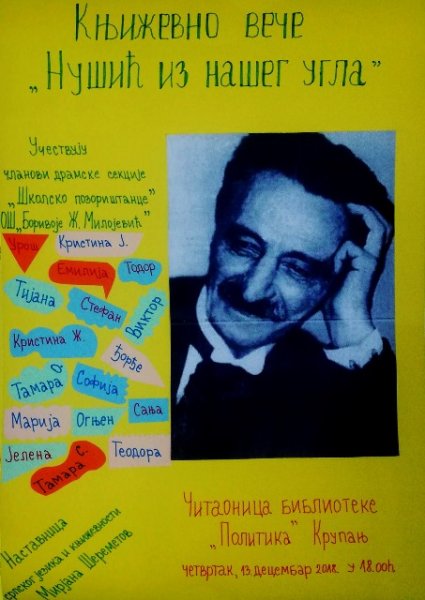 Књижевно вече
„Нушић из нашег угла"
Учествују
чланови драмске секције
„Школско позориштанце"
ОШ „Боривоје Ж. Милојевић"
Урош Кристина Ј.
Емилија Тодор
Тијана Стефан Виктор
Кристина Ж. Ђорђе
Тамара О. Софија
Марија Огњен Сања
Јелена Тамара С. Теодора
Наставница
српског језика и књижевности
Мирјана Шереметов
Читаоница библиотеке
„Политика" Крупањ
четвртак, 13. децембар 2018. у 18.00h